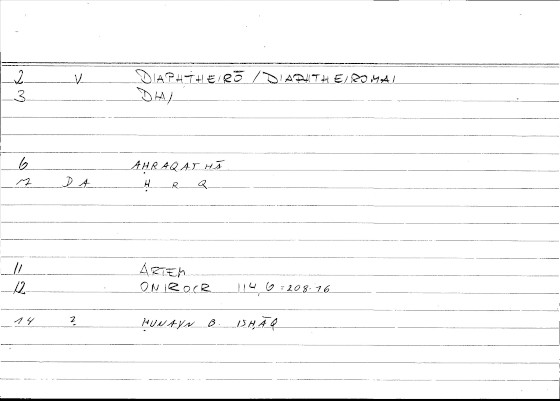 2 V DIAPHTHEIRŌ / DIAPHTHEIROMAI
3 DIA/
6 AḤRAQATHĀ
7 DA Ḥ R Q
11 ARTEM
12 ONIROCR 114,6 = 208.16
14 2 ḤUNAYN B. ISḤĀQ